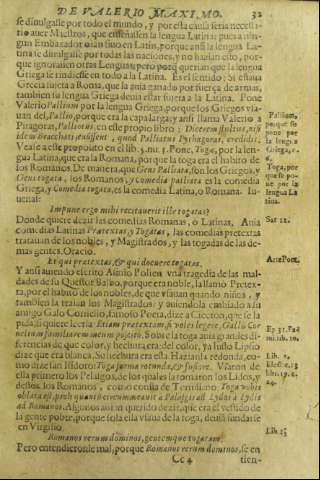 DE VALERIO MAXIMO. 32
se diuulgasse por todo el mundo, y por esta causa seria necessa-
rio auer Maestros, que enseñassen la lengua Latina: pues a nin-
gun Embaxador oian sino en Latin, porque ansi la lengua La-
tina se diuulgasse por todas las naciones, y no hazian esto, por-
que ignorassen otras Lenguas: pero porque querian que la lengua
Griega se rindiesse en todo a la Latina. Es el sentido: Si estaua
Grecia sujeta a Roma, que la auia ganado por fuerça de armas,
tambien su lengua Griega deuia estar sujeta a la Latina. Pone
Valerio Pallium por la lengua Griega, porque los Griegos vsa-
uan del, Pallio, porque era la capa larga: y ansi llama Valerio a
Pitagoras, Palleatus, en este propio libro:
Vease a este proposito en el lib. Pone, Toga, por la len-
gua Latina, que era la Romana, porque la toga era el habito de
los Romanos. De manera, que Gens Palliata, son los Griegos, y
Gens togata, los Romanos, y comedia palliata es la comedia
Griega, y Comedia togata, es la comedia Latina, o Romana. Iu-
uenal:
Impune ergo mihi recitauerit ille togatas?
Donde quiere dezir las comedias Romanas, o Latinas, Auia
comedias Latinas Pretextas, y Togatas, las comedias pretextas
tratauan de los nobles, y Magistrados, y las togadas de las de-
mas gentes. Oracio.
Et qui pretextas, & qui docuere togatas.
Y ansi auiendo escrito Asinio Polion vna tragedia de las mal-
dades de su Questor Balbo, porque era noble, la llamo Pretex-
ta, por el habito de los nobles, de que vsauan quando niños, y
tambien la traian los Magistrados: y auiendola embiado a su
amigo Galo Cornelio, famoso Poeta, dize a Ciceron, que se la
pida, si quiere leerla: Etiam pretextam, si voles legere, Gallo Cor
nelium familiarem meum poscito. Sobre la toga auia grandes di-
ferencias de que color, y hechura era: del color, ya Iusto Lipsio
dize que era blanca. Su hechura era esta Hazianla redonda, co-
mo dize san Isidoro: Toga forma rotunda, & fusiore. Vsaron de
ella primero los Pelasgos, de los quales la tomaron los Lidos, y
destos los Romanos, como consta de Tertuliano. Toga vobis
oblata est, proh quanta circummeauit a Pelasgis ad Lydos a Lydis
ad Romanos. Algunos auran querido dezir, que era el vestido de
la gente pobre, porque sola ella vsaua de la toga, deuia fundarse
en Virgilio.
Romanos rerum dominos, gentemque togatam.
Pero entendieronle mal, porque Romanos rerum dominos, se en
Cc 4 tien-
Pallium,
porque se
pone por
la lengua
Griega,
Toga, por
que se po-
ne por la
lengua La
tina.
Sat 12.
Arte Poet.
Ep. 31. Fa
mi. lib. 10.
Lib. 1.
Elect. c. 13
lib. 19. c.
24.
Lib. 1.